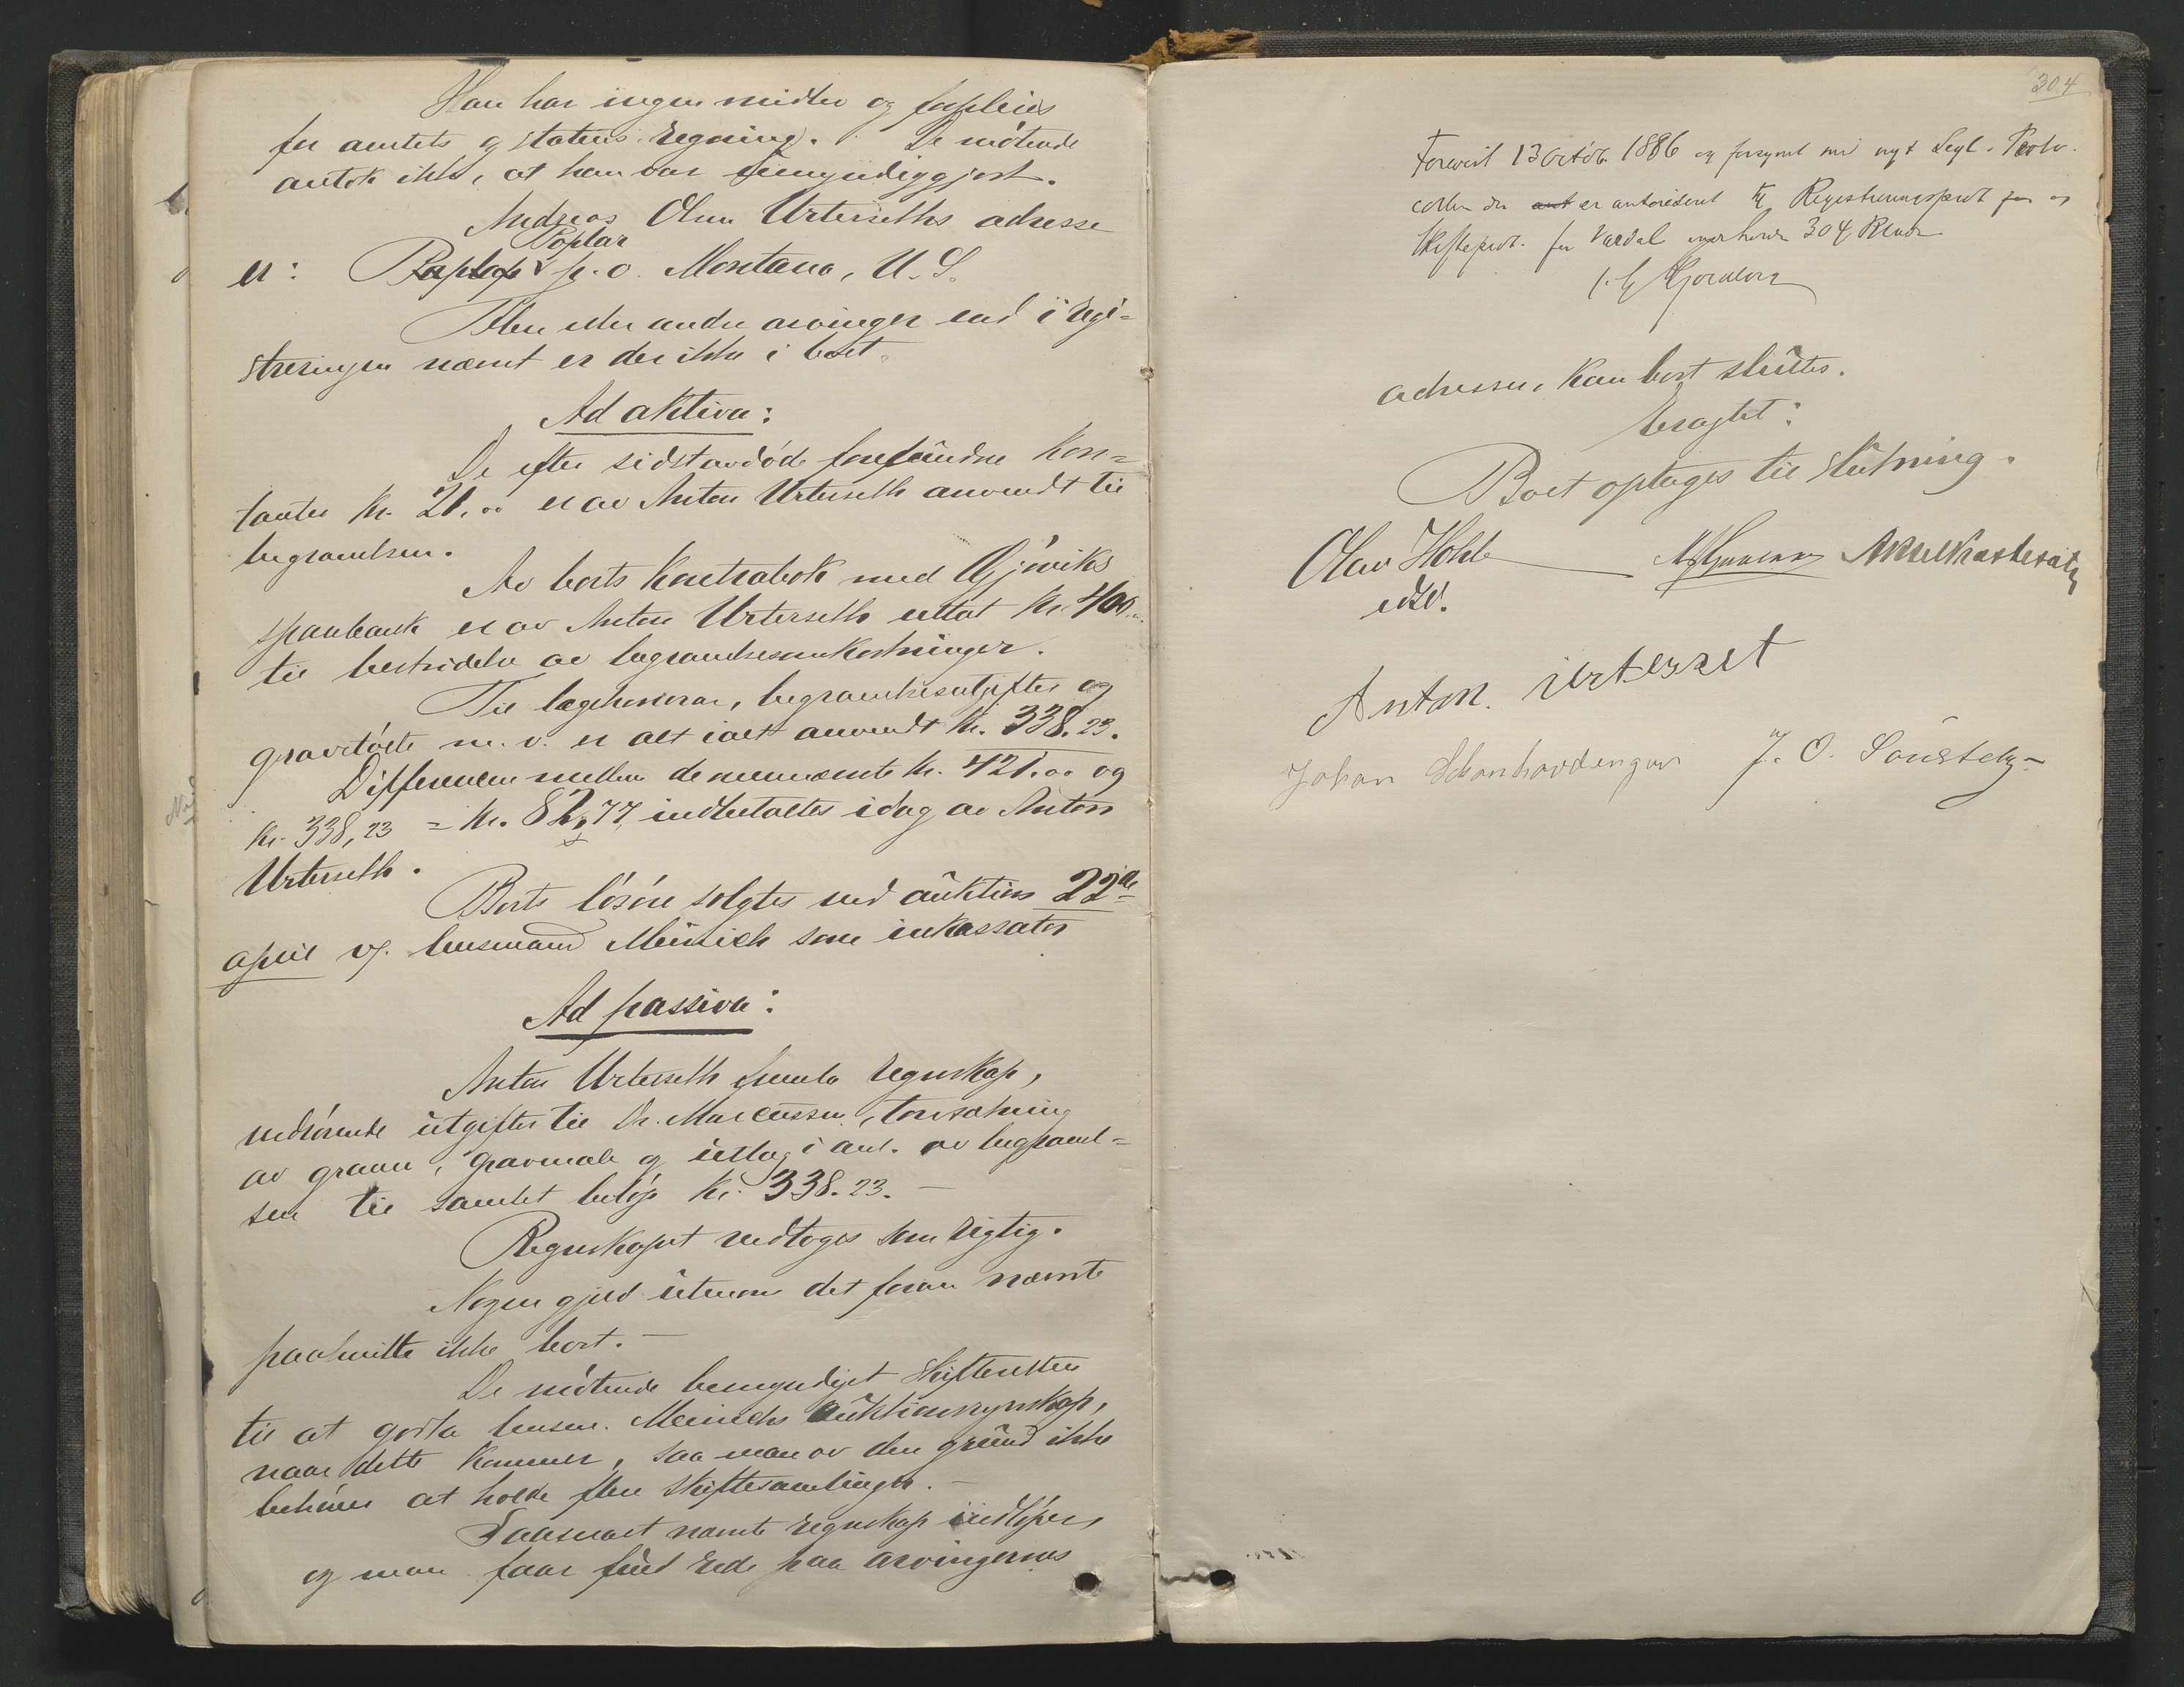 Han har ingen midler og forpleies
for amtets og statens regning. De møtende
antok ikke, at han var umyndiggjort.
Andreas Olsen Urterseths adresse
Poplar
er: p.o. Montana, U.S.
Flere eller andre arvinger end i regi-
streringen nævnt er der ikke i boet.
Ad aktiva:
De efter sidstavdøde forefundne kon-
tanter kr. 21.00 er av Anton Urterseth anvendt til
begravelsen.
Av boets kontrabok med Gjøviks
sparebank er av Anton Urterseth uttat kr. 400.
til bestridelse av begravelsesomkostninger.
Til lægehonorar, begravelsesutgifter og
gravstøtte m.v. er alt ialt anvendt kr. 338.23.
Differencen mellem de nævnte kr. 421.00 og
kr. 338,23 = kr. 82,77 indbetaltes idag av Anton
Urterseth.
Boets løsøre solgtes ved auktion 22de
april vf. lensmand Meinich som inkassator
Ad passiva:
Anton Urterseth fremla regnskap,
vedrørende utgifter til Dr. Marcussen,
av graven, gravmæle og utlæg i anl. av begravel-
sen til samlet beløp kr. 338.23. —
Regnskapet vedtoges som rigtig.
Nogen gjeld utenom det foran nævnte
paahvilte ikke boet. —
De møtende bemyndiget skifteretten
til at godta lensm. Meinichs auktionsregnskap,
naar dette kommer, saa man av den grund ikke
behøver at holde flere skiftesamlinger. —
Saasnart nævnte regnskap indløper,
og man faar fuld rede paa arvingernes
304
Forevist 13 Octob. 1886 og forsynet med nyt Segl. Proto-
collen der aut er autoriseret til Registreringsprot for og
Skifteprot. for Vardal 304 Blade
adresser, kan boet sluttes.
Besagtet:
Boet optages til slutning.
Olav Hohle
edsv.
Anton. Urterset
Johan J. O.